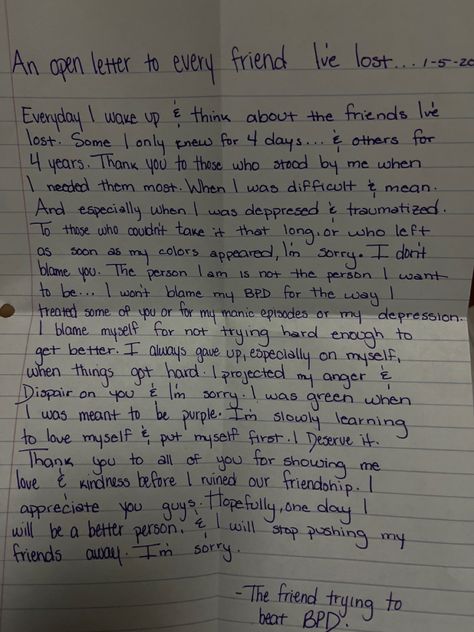 An open letter to every friend I've lost... 1-5-20
Everyday I wake up & think about the friends I've
lost. Some I only knew for 4 days... & others for
4 years. Thank you to those who stood by me when
I needed them most. When I was difficult & mean.
And especially when I was deppresed & traumatized.
To those who couldn't take it that long, or who left
as soon as my colors appeared, I'm sorry. I don't
blame you. The person I am is not the person I want
to be... I won't blame my BPD for the way I
treated some of you or for my manic episodes or my depression.
I blame myself for not trying hard enough to
get better. I always gave up, especially on myself,
when things got hard. I projected my anger &
Dispair on you & I'm sorry. I was green when
I was meant to be purple. I'm slowly learning
to love myself & put myself first. I Deserve it.
Thank you to all of you for showing me
love & kindness before I ruined our friendship. I
appreciate you guys. Hopefully, one day I
will be a better person. & I will stop pushing my
friends away. I'm sorry.
- The friend trying to
beat BPD.